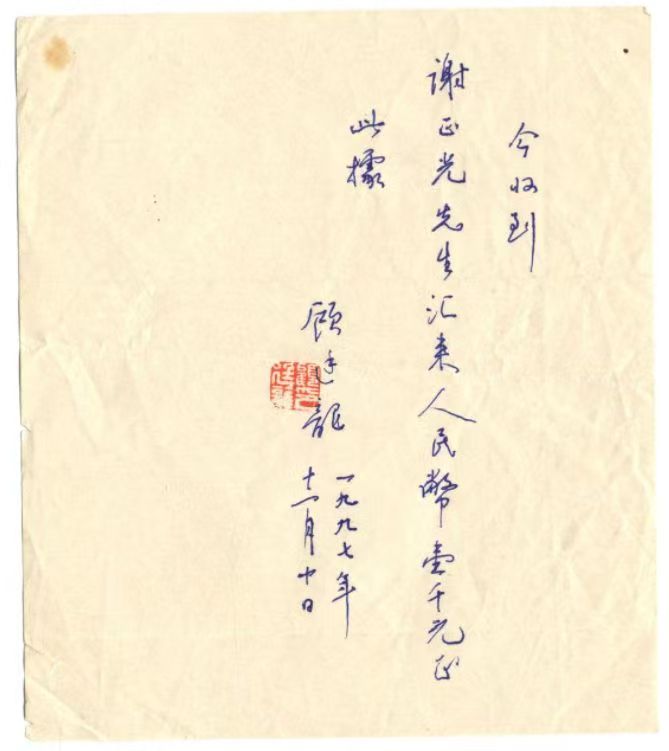 今收到
谢正光先生汇来人民幣壹千元正
此據
顾廷龍
一九九七年
十一月十日